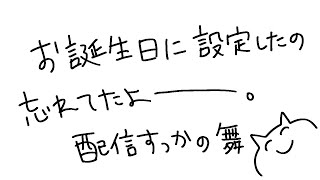 お誕生日に設定したの
忘れてたよ———。
配信すっかの舞